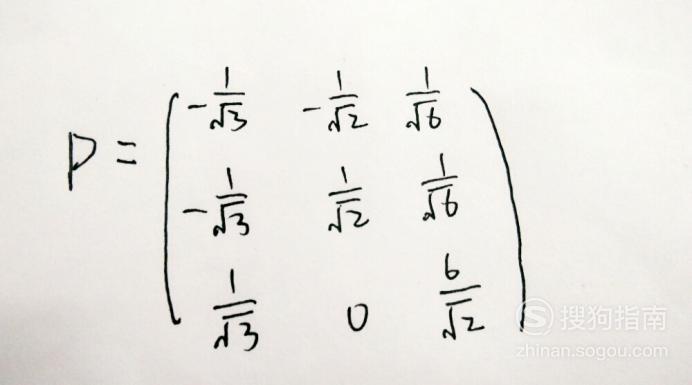 -1/√3 -1/√2 1/√6
P = -1/√3 1/√2 1/√6
1/√3 0 6/√2
S 搜狗指南
zhinan.sogou.com